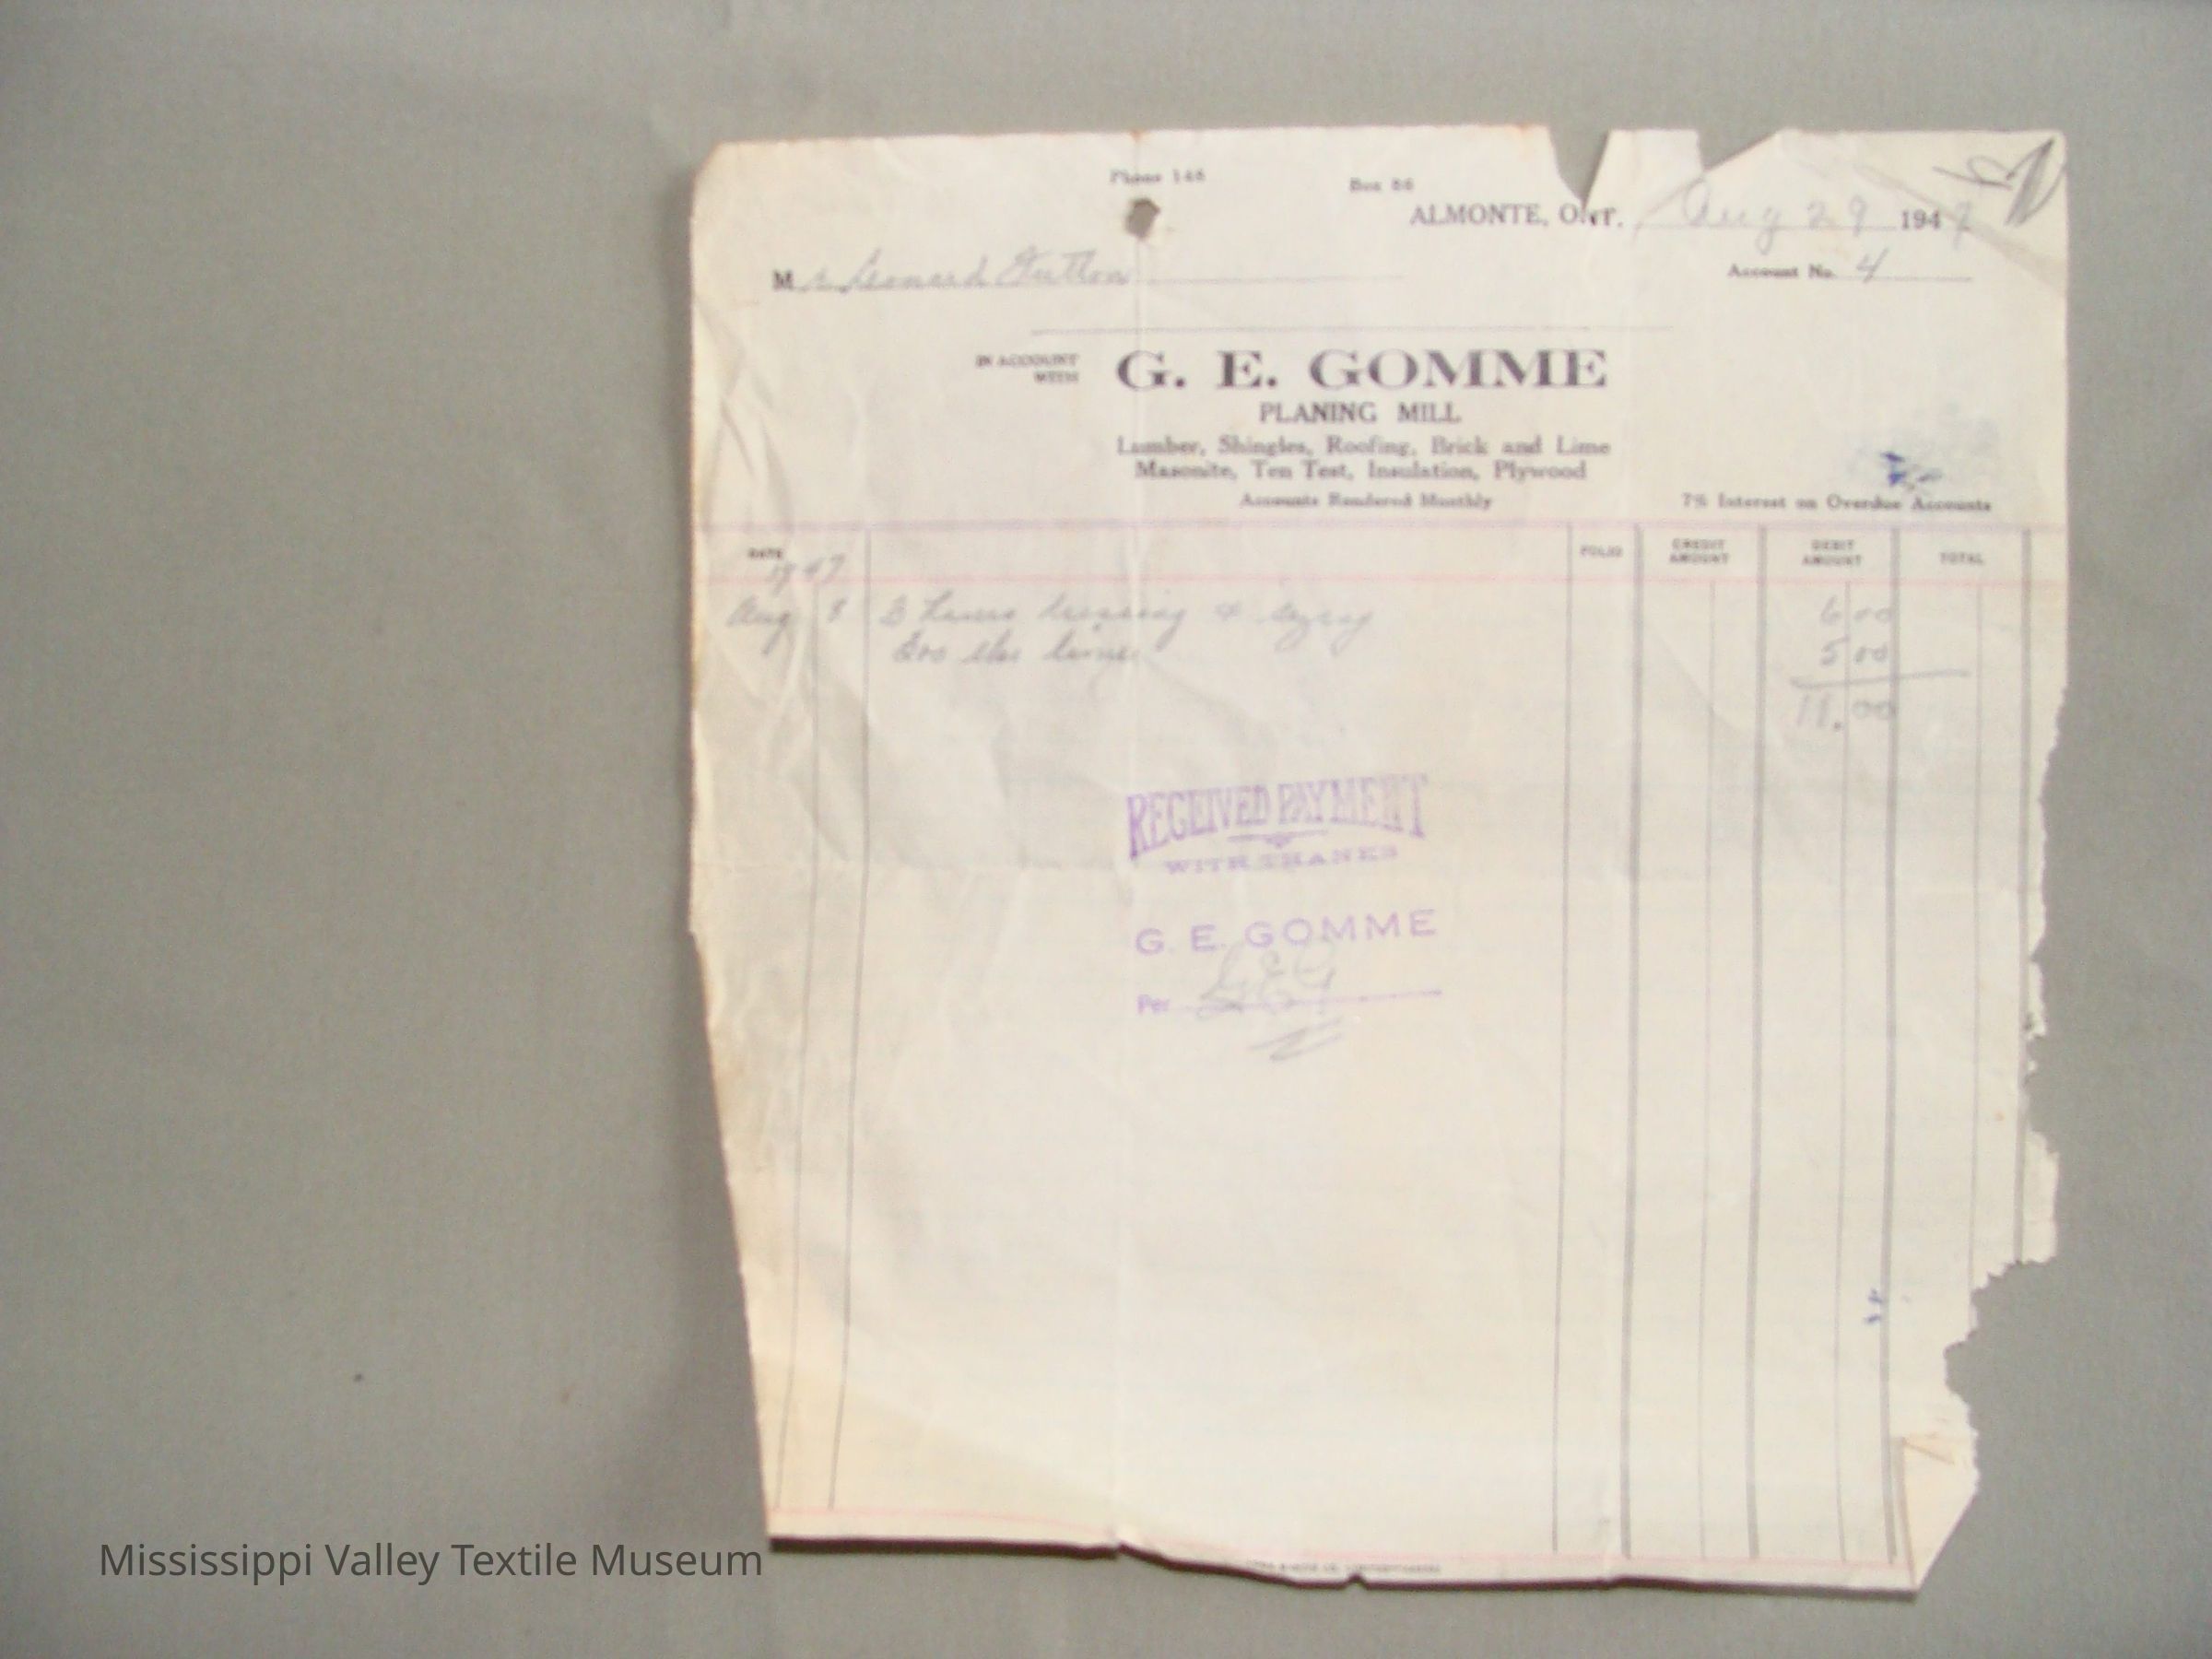 Phone 146 Box 86
ALMONTE, ONT. Aug 29 1947
Mr Leonard
Account No. 4
IN ACCOUNT WITH
G. E. GOMME
PLANING MILL
Lumber, Shingles, Roofing, Brick and Lime
Masonite, Ten Test, Insulation, Plywood
Accounts Rendered Monthly
7% Interest on Overdue Accounts
DATE FOLIO CREDIT AMOUNT DEBIT AMOUNT TOTAL
1947
Aug 8 3 hours & 6 00
lbs lime 5 00
11.00
RECEIVED PAYMENT
WITH THANKS
G. E. GOMME
Per GEG
Mississippi Valley Textile Museum